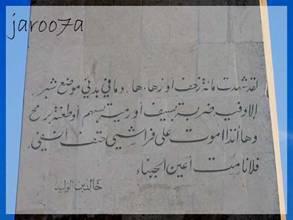 jaroo7a
لقد شهدت مائة زحف أو زهاءها وما في بدني موضع شبر
إلا وفيه ضربة بسيف أو رمية بسهم أو طعنة برمح
وها أنذا أموت على فراشي حتف أنفي
فلا نامت أعين الجبناء
خالد بن الوليد